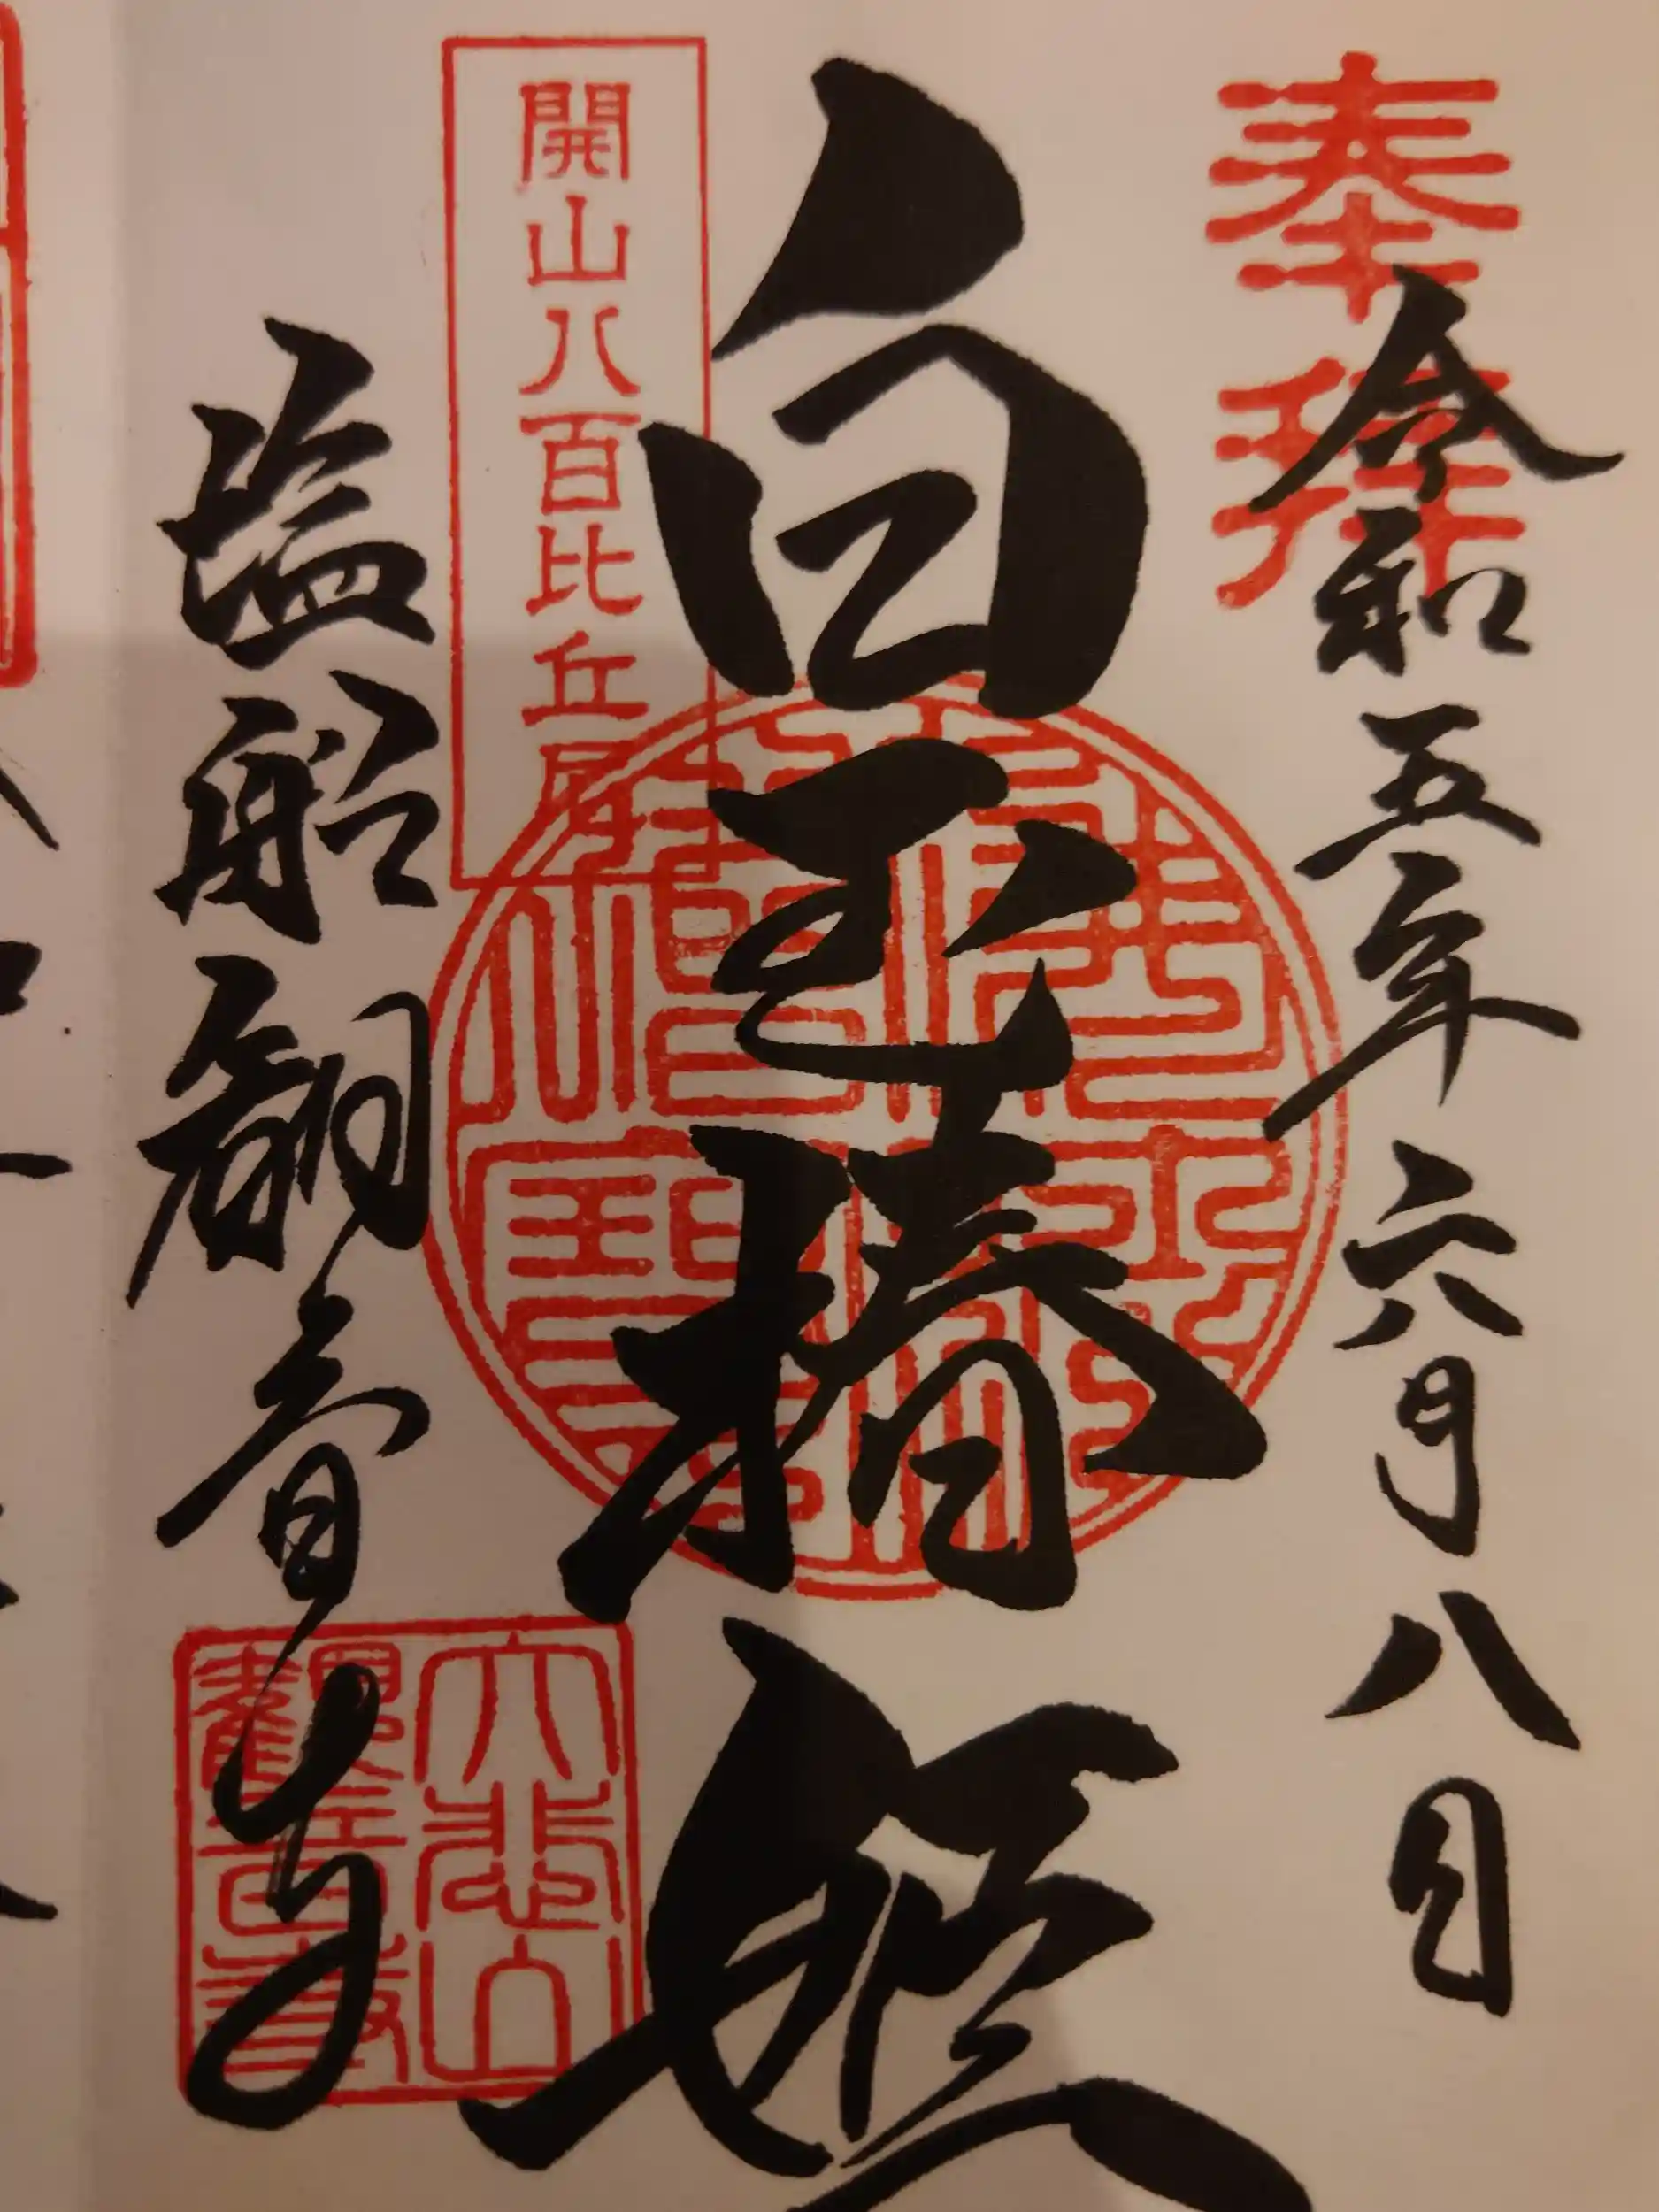 奉拝
令和五年六月八日
白玉椿姫
開山八百比丘尼
塩船観音寺
大悲山
観音寺